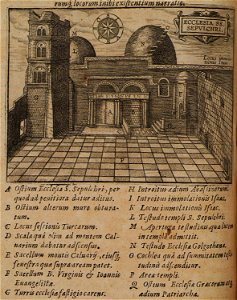 rumq; locorum inibi existentium narratio.
ECCLESIA S.
SEPULCHRI.
A Ostium Ecclesiæ S. Sepulchri, per
quod ad penitiora ditur aditus.
B Ostium alterum muro obtura-
tum.
C Locus sessionis Turcarum.
D Scala qua Nim ad montem Cal-
uarium dabatur ascensus.
E Sacellum montis Caluarij, eiusq;
fenestra qua supra eam patet.
F Sacellum B. Virginis & Ioannis
Euangelistæ.
G Turris ecclesiæ fastigio carens.
H Introitus ædium
I Introitus immolationis Isac.
K Locus immolationis Isac.
L Testudo templi S. Sepulchri.
M Apertura testudinis qua lumen
in templū admittit.
N Testudo Ecclesiæ Golgothana.
O Cochlea qua ad summitatem tes-
tudinis ascenditur.
P Area templi.
Q Ostium Ecclesiæ Græcorum
ædium Patriarchæ.